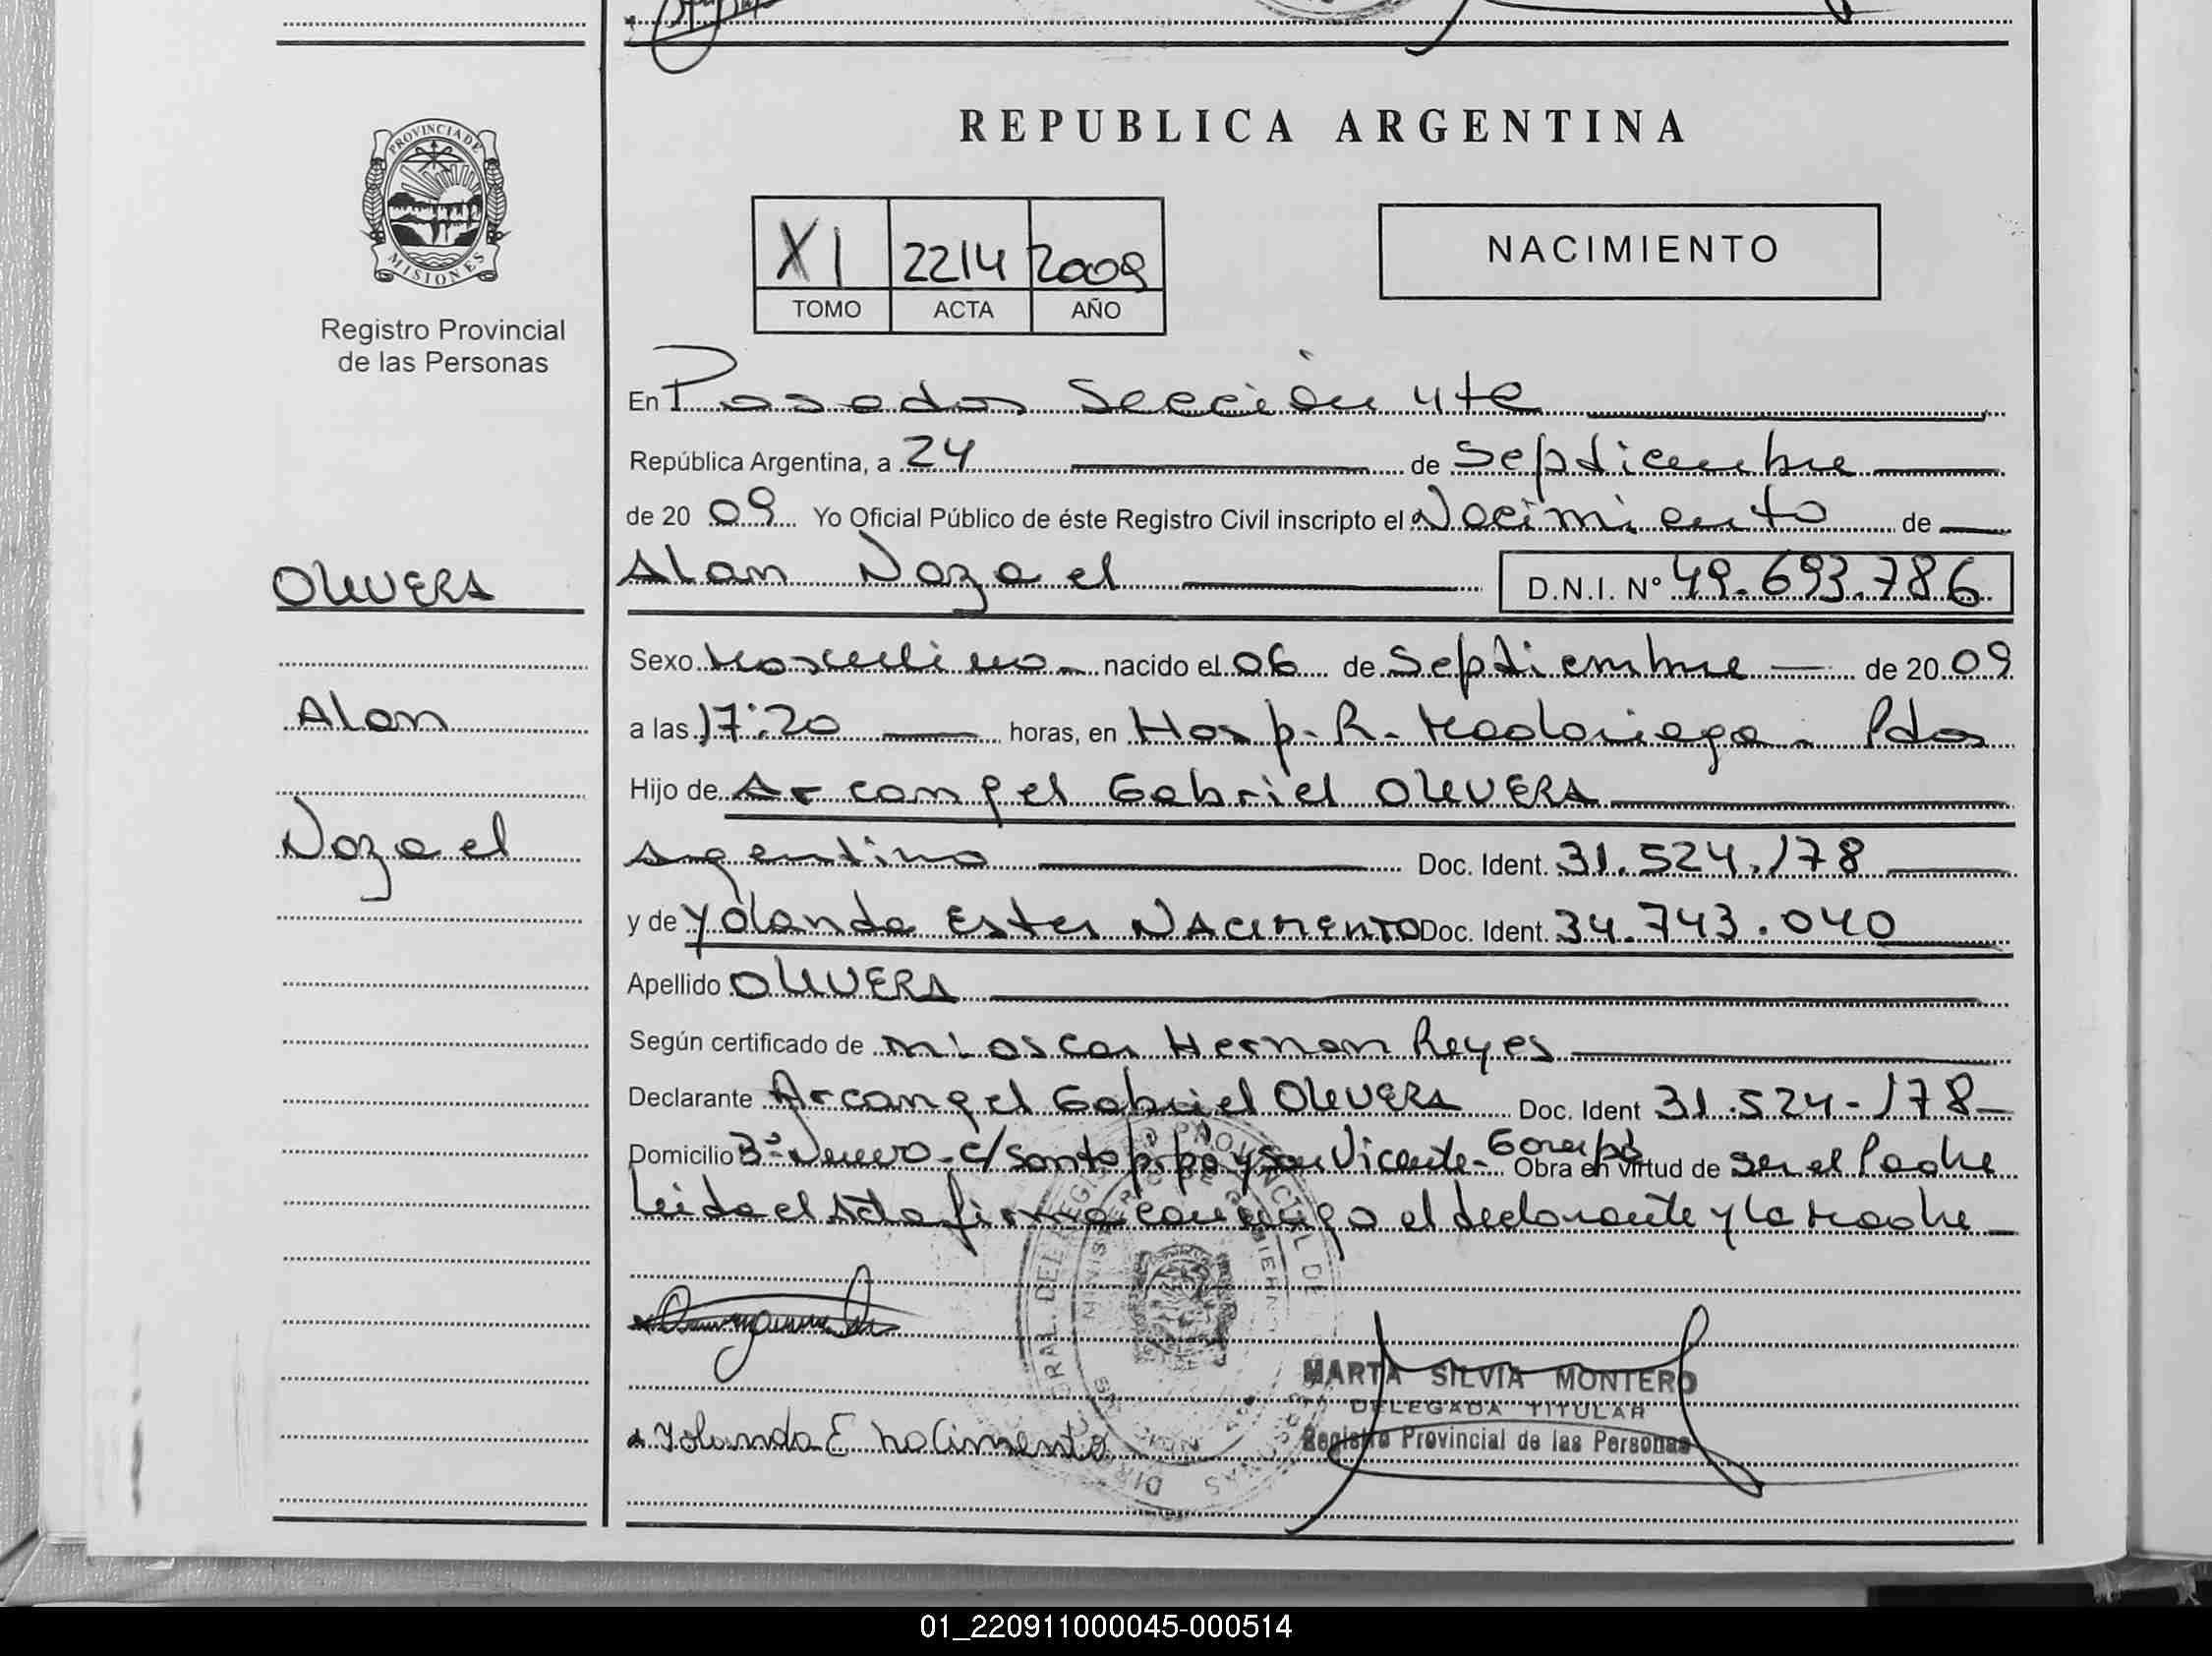 REPUBLICA ARGENTINA
PROVINCIA DE
MISIONES
Registro Provincial
de las Personas
XI 2214 2009
TOMO ACTA AÑO
NACIMIENTO
En Posadas Sección 4te
República Argentina, a 24 de Septiembre
de 20 09 Yo Oficial Público de éste Registro Civil inscripto el Nacimiento de
OLIVERA
Alan Nozael D.N.I. Nº 49.693.786
Sexo Masculino nacido el 06 de Septiembre de 20 09
Alan
a las 17:20 horas, en Hosp. R. Madariaga - Pdas
Hijo de Arcangel Gabriel OLIVERA
Nozael
Argentino Doc. Ident. 31.524.178
y de Yolanda Ester NACIMENTO Doc. Ident. 34.743.040
Apellido OLIVERA
Según certificado de Oscar Hernan Reyes
Declarante Arcangel Gabriel OLIVERA Doc. Ident 31.524-178-
Domicilio Bº Nuevo - c/ Santo Pipó y San Vicente - Garupá Obra en virtud de ser el Padre
Leida el Acta firma conmigo el declarante y la Madre
MARTA SILVIA MONTERO
DELEGADA TITULAR
Yolanda E nacimento
Registro Provincial de las Personas
01_220911000045-000514